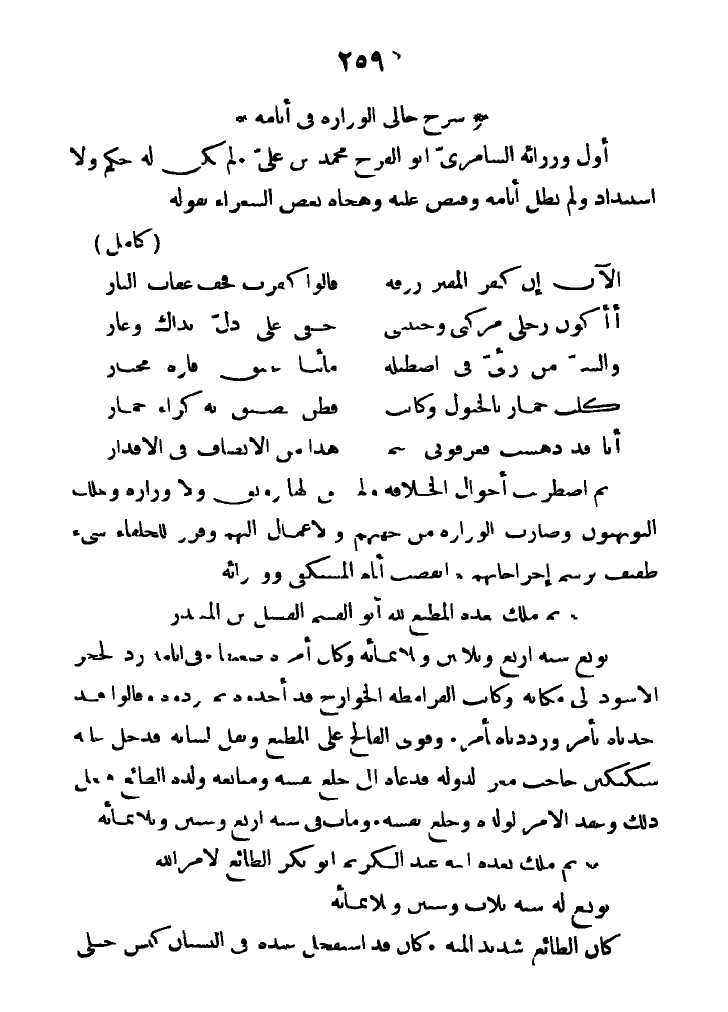 ٢٥٩
* شرح حال الوزارة في أيامه *
أول وزرائه السامري أبو الفرج محمد بن علي ولم يكن له حكم ولا
استبداد ولم تطل أيامه وقبض عليه وهجاه بعض الشعراء بقوله
(كامل)
الآن إن كفر المقتر رزقه قالوا كفرت فخف عقاب النار
أأكون رحلي مركبي وحبيبي على ذل بذاك وعار
والسر من رأى في اصطبله مائتا فاره مختار
كلب حمار بالخيول وكاتب فطن يضيق به كراء حمار
أنا قد دهشت فعرفوني هذا من الانصاف في الاقدار
ثم اضطربت أحوال الخلافة ولم لها رونق ولا وزارة وملك
البويهيون وصارت الوزارة من جهتهم والاعمال اليهم وقرر للخلفاء شيء
طفيف برسم إخراجاتهم انقضت أيام المستكفي ووزرائه
ثم ملك بعده المطيع لله أبو القسم الفضل بن المقتدر
بويع سنة أربع وثلاثين وثلاثمائة وكان أمره ضعيفا وفي أيامه رد الحجر
الاسود الى مكانه وكانت القرامطة الخوارج قد أخذوه ثم ردوه وقالوا قد
أخذناه بأمر ورددناه بأمر وقوي الفالج على المطيع وثقل لسانه فدخل عليه
سبكتكين حاجب معز الدولة فدعاه الى خلع نفسه ومبايعة ولده الطائع ففعل
ذلك وعقد الامر لولده وخلع نفسه ومات في سنة أربع وستين وثلاثمائة
ثم ملك بعده ابنه عبد الكريم أبو بكر الطائع لامر الله
بويع له سنة ثلاث وستين وثلاثمائة
كان الطائع شديد المنة وكان قد استفحل عنده في البستان كبش جبلي